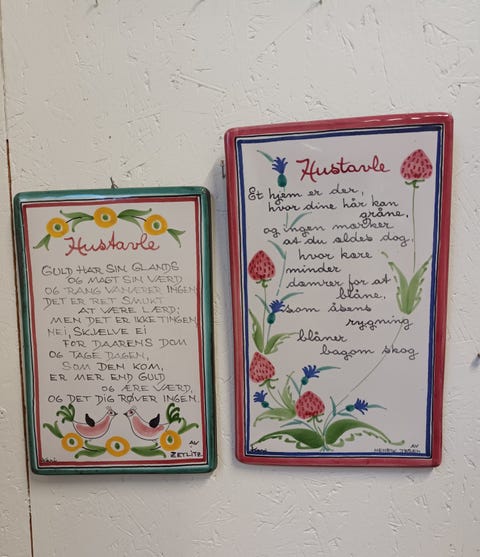 Hustavle
GULD HAR SIN GLANDS
OG MAGT SIN VÆRD
OG RANG VANÆRER INGEN
DET ER RET SMUKT
AT VÆRE LÆRD;
MEN DET ER IKKE TINGEN
NEI, SKJÆLVE EI
FOR DAARENS DOM
OG TAGE DAGEN,
SOM DEN KOM,
ER MER END GULD
OG ÆRE VÆRD,
OG DET DIG RØVER INGEN.
AV
ZETLITZ
Hustavle
Et hjem er der,
hvor dine hår kan
gråne,
og ingen mærker
at du ældes dog,
hvor kære
minder
dæmrer for at
blåne,
som åsens
rygning
blåner
bagom skog
AV
HENRIK IBSEN